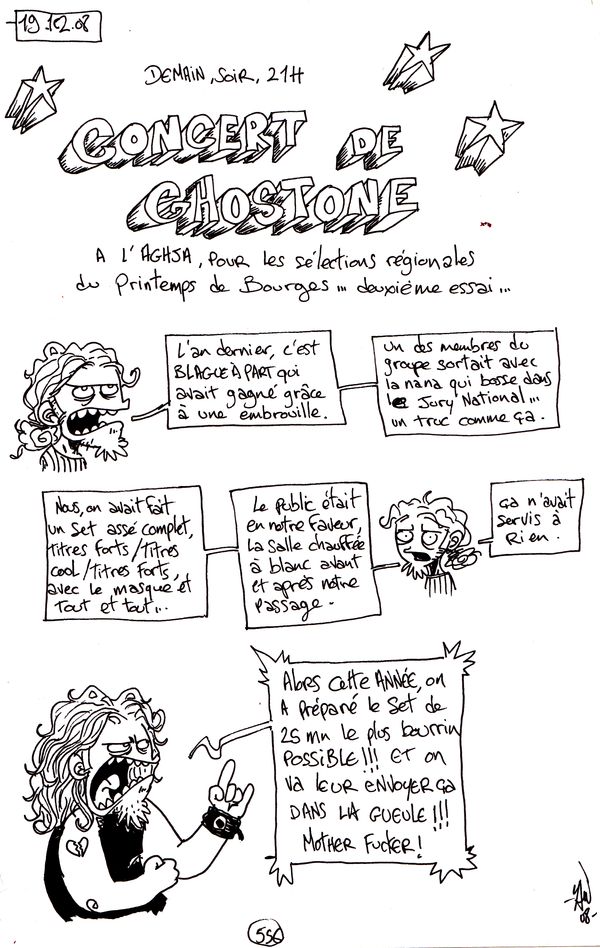 19.12.08
DEMAIN, SOIR, 21H
CONCERT DE
GHOSTONE
A L'AGHJA, POUR LES sélections régionales
du Printemps de Bourges... deuxième essai...
L'an dernier, c'est
BLAGUE À PART qui
avait gagné grâce
à une embrouille.
Un des membres du
groupe sortait avec
la nana qui bosse dans
le Jury National...
un truc comme ça.
Nous, on avait fait
un set assé complet,
titres forts/titres
cool/titres forts,
avec le masque et
tout et tout...
Le public était
en notre faveur,
la salle chauffée
à blanc avant
et après notre
passage.
ça n'avait
servis à
Rien.
Alors cette ANNÉE, on
A préparé le set de
25 mn le plus bourrin
POSSIBLE!!! ET on
va leur ENVOYER ÇA
DANS LA GUEULE!!!
MOTHER FUCKER!
08-
556